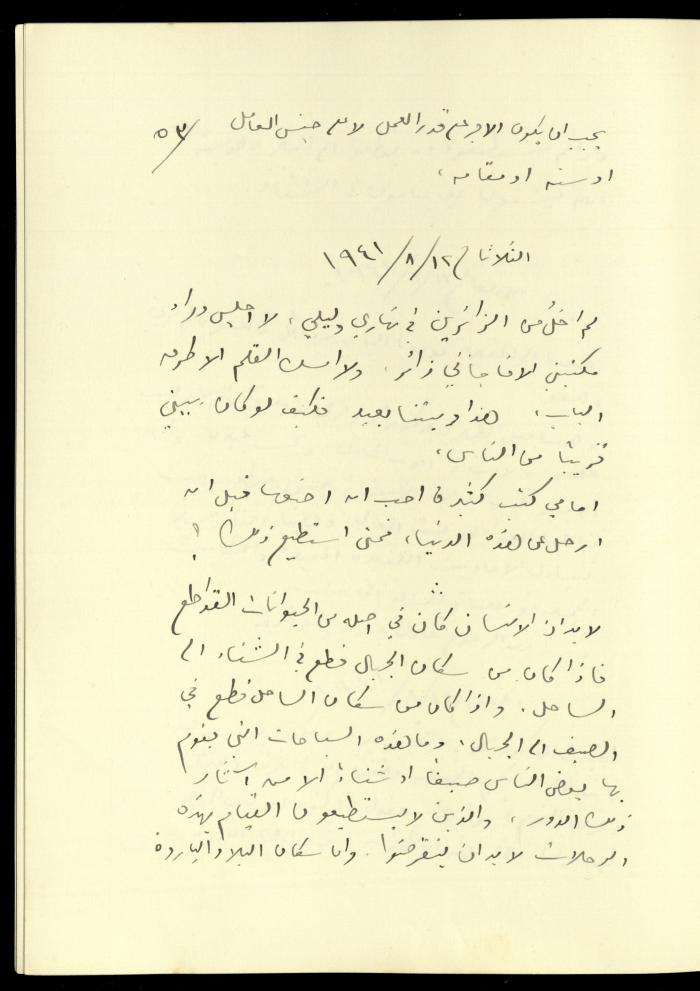 يجب ان يكون الاجر على قدر العمل لا على جنس العامل
٥٣/
او سنه او مقامه،
الثلاثاء ١٢/ ٨/ ١٩٤١
لم اخلُ من الزائرين في نهاري وليلي، لا اجلس وراء
مكتبتي الا فاجأني زائر. ولا امسك القلم الا طرق
الباب، هذا وبيتنا بعيد فكيف لو كان بيتي
قريبًا من الناس،
امامي كتب كثيرة احب ان اضعها قبل ان
ارحل عن هذه الدنيا، فمتى استطيع ذلك؟
لا بد ان الانسان كان في اصله من الحيوانات القواطع
فاذا كان من سكان الجبال قطع في الشتاء الى
الساحل. واذا كان من سكان الساحل قطع في
الصيف الى الجبال، وما هذه السياحات التي يقوم
بها بعض الناس صيفًا او شتاءً الا من آثار
ذلك الدور، والذين لا يستطيعون القيام بهذه
الرحلات لا بد ان ينقرضوا. واما سكان البلاد الباردة